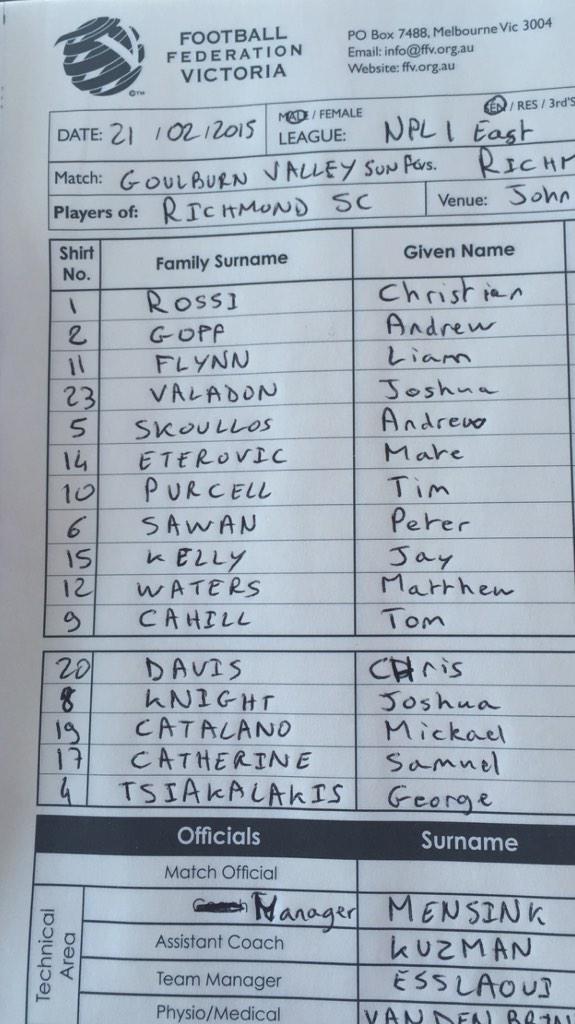 FOOTBALL
FEDERATION
VICTORIA
PO Box 7488, Melbourne Vic 3004
Email: info@ffv.org.au
Website: ffv.org.au
DATE: 21 / 02 / 2015
MALE / FEMALE SEN / RES / 3rd's
LEAGUE: NPL 1 East
Match: GOULBURN VALLEY SUNS vs. RICHM
Players of: RICHMOND SC Venue: John
Shirt No. Family Surname Given Name
1 ROSSI Christian
2 GOPP Andrew
11 FLYNN Liam
23 VALADON Joshua
5 SKOULLOS Andrew
14 ETEROVIC Mate
10 PURCELL Tim
6 SAWAN Peter
15 KELLY Jay
12 WATERS Matthew
9 CAHILL Tom
20 DAVIS CHris
8 KNIGHT Joshua
19 CATALANO Mickael
17 CATHERINE Samuel
4 TSIAKALAKIS George
Officials Surname
Match Official
Technical Area
Manager MENSINK
Assistant Coach KUZMAN
Team Manager ESSLAOUI
Physio/Medical VAN DEN